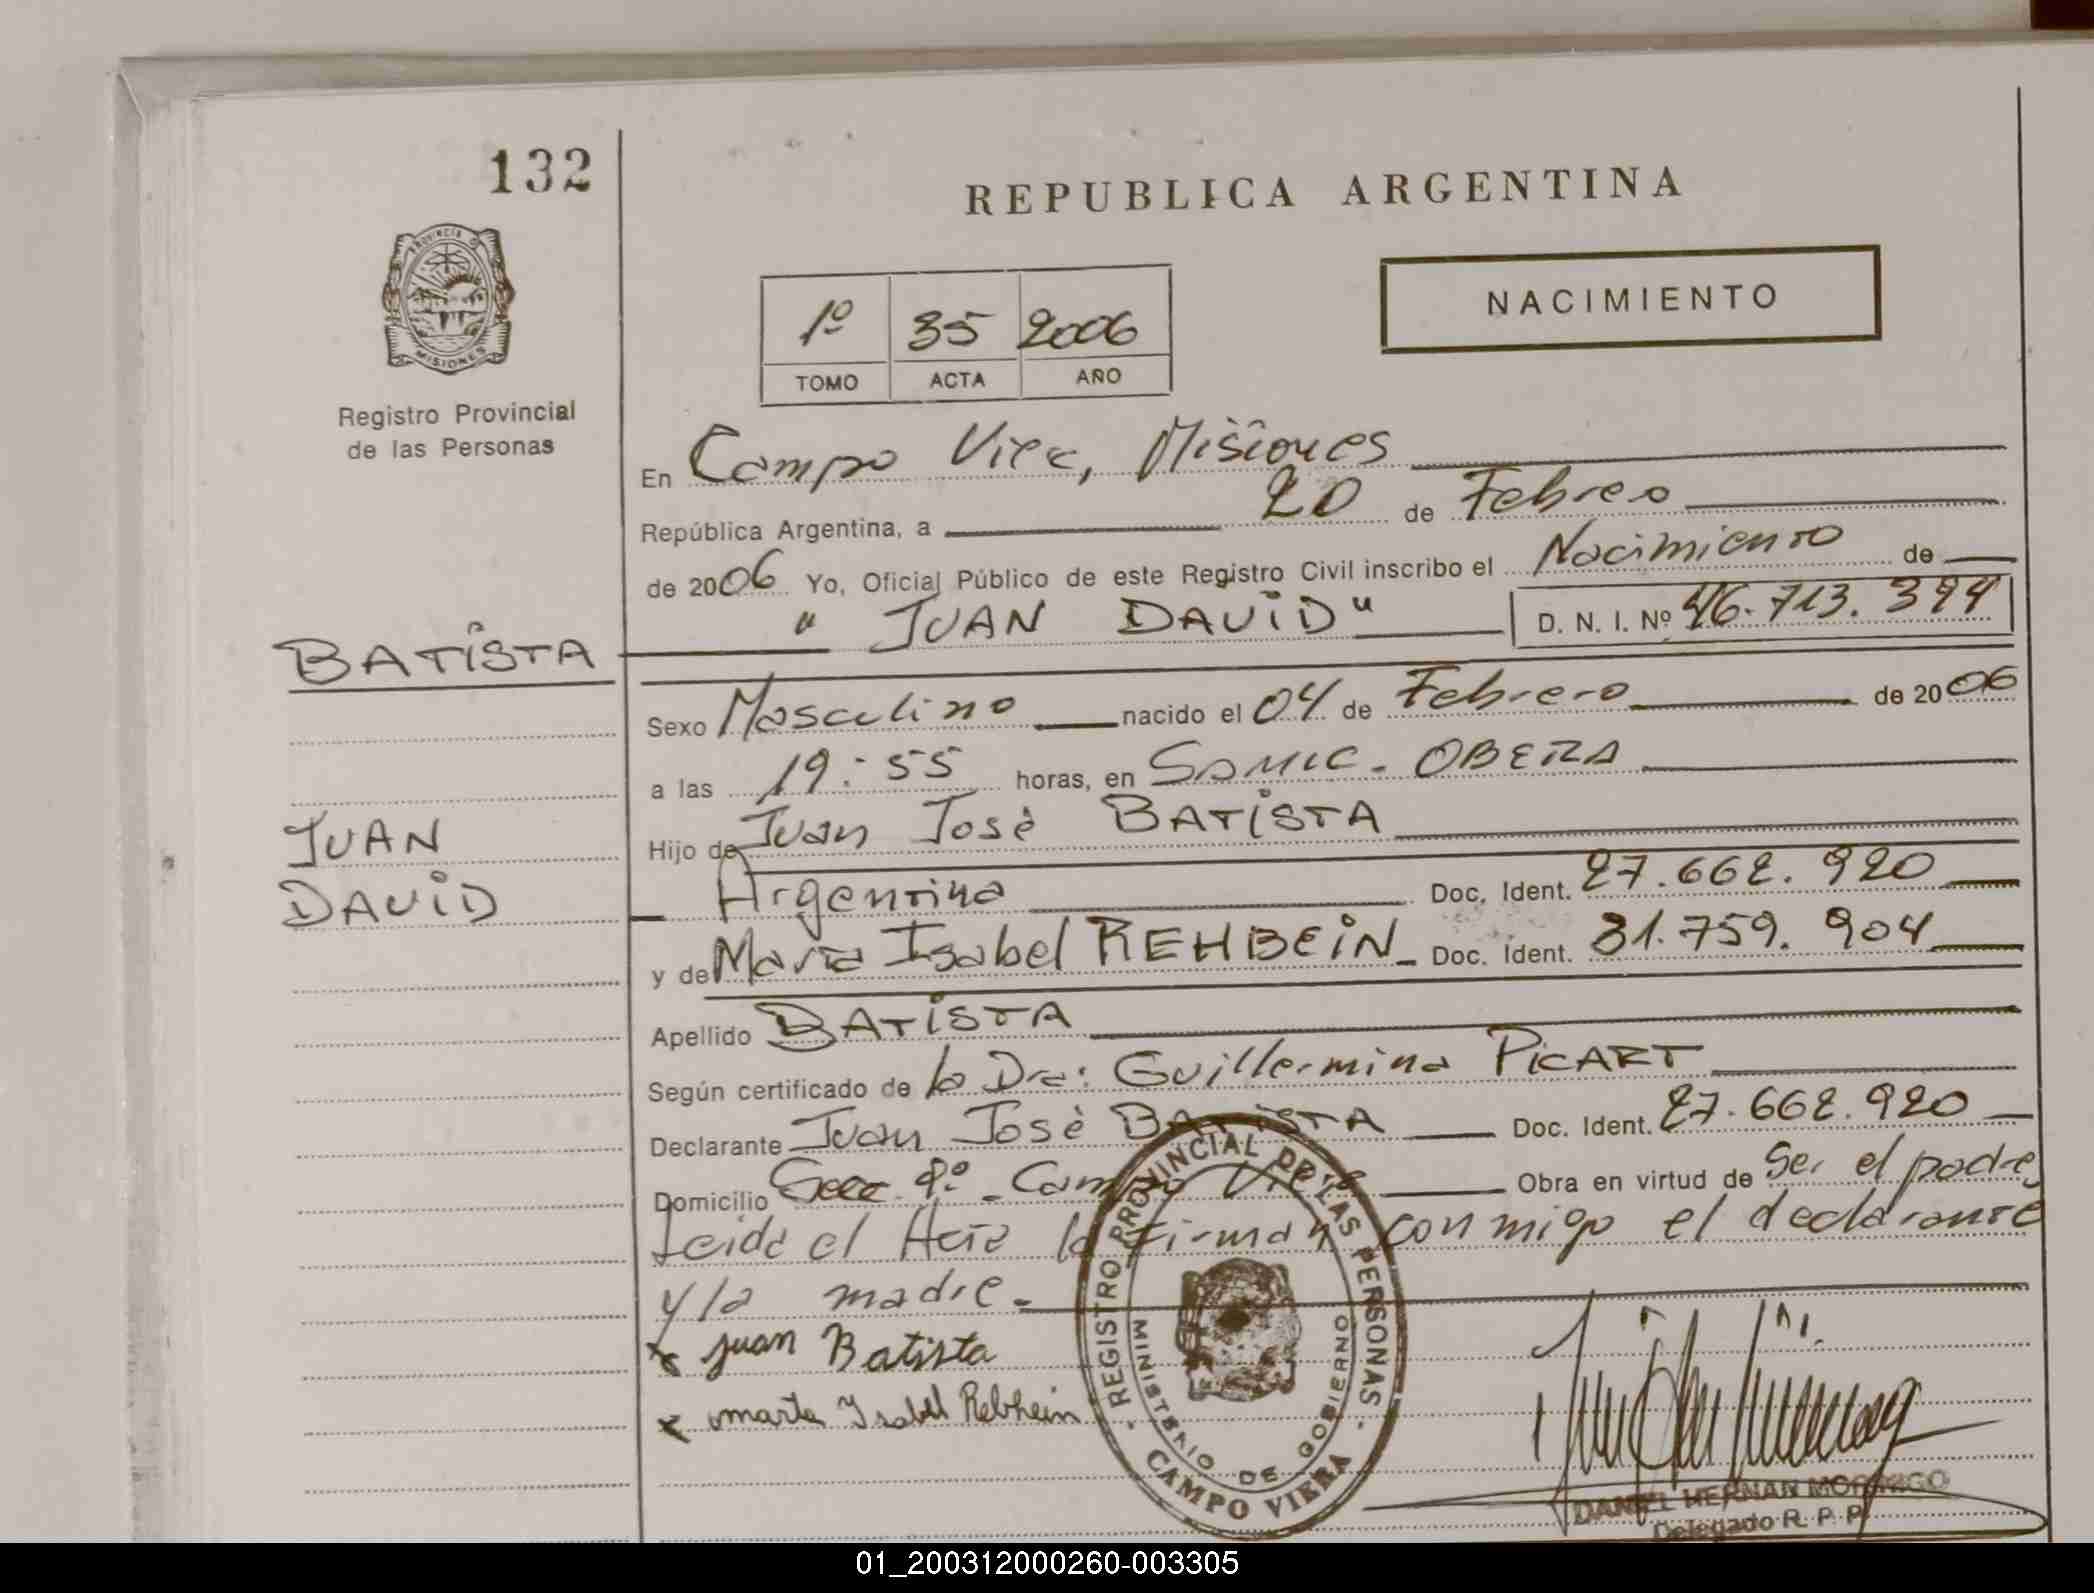 132
REPUBLICA ARGENTINA
PROVINCIA D
MISIONES
NACIMIENTO
1º 35 2006
TOMO ACTA AÑO
Registro Provincial
de las Personas
En Campo Viera, Misiones
República Argentina, a 20 de Febrero
de 2006 Yo, Oficial Público de este Registro Civil inscribo el Nacimiento de
" JUAN DAVID " D. N. I. Nº 46.713.394
BATISTA
JUAN
DAVID
Sexo Masculino nacido el 04 de Febrero de 2006
a las 19:55 horas, en SAMIC - OBERA
Hijo de Juan José BATISTA
Argentina Doc. Ident. 27.662.920
y de María Isabel REHBEIN Doc. Ident. 31.759.904
Apellido BATISTA
Según certificado de la Dra: Guillermina PICART
Declarante Juan José BATISTA Doc. Ident. 27.662.920
Domicilio 8º - Campo Viera Obra en virtud de Ser el padre
Leida el Acta la firman conmigo el declarante
y la madre.
x Juan Batista
x marta Isabel Rebhein
REGISTRO PROVINCIAL DE LAS PERSONAS
MINISTERIO DE GOBIERNO
CAMPO VIERA
DANIEL HERNAN
Delegado R. P. P.
01_200312000260-003305